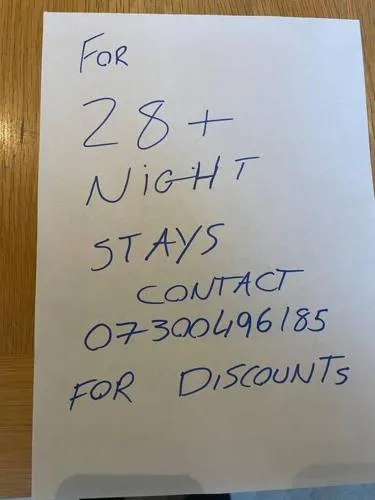 FOR
28+
NiGHT
STAYS
CONTACT
07300496185
FOR DISCOUNTs